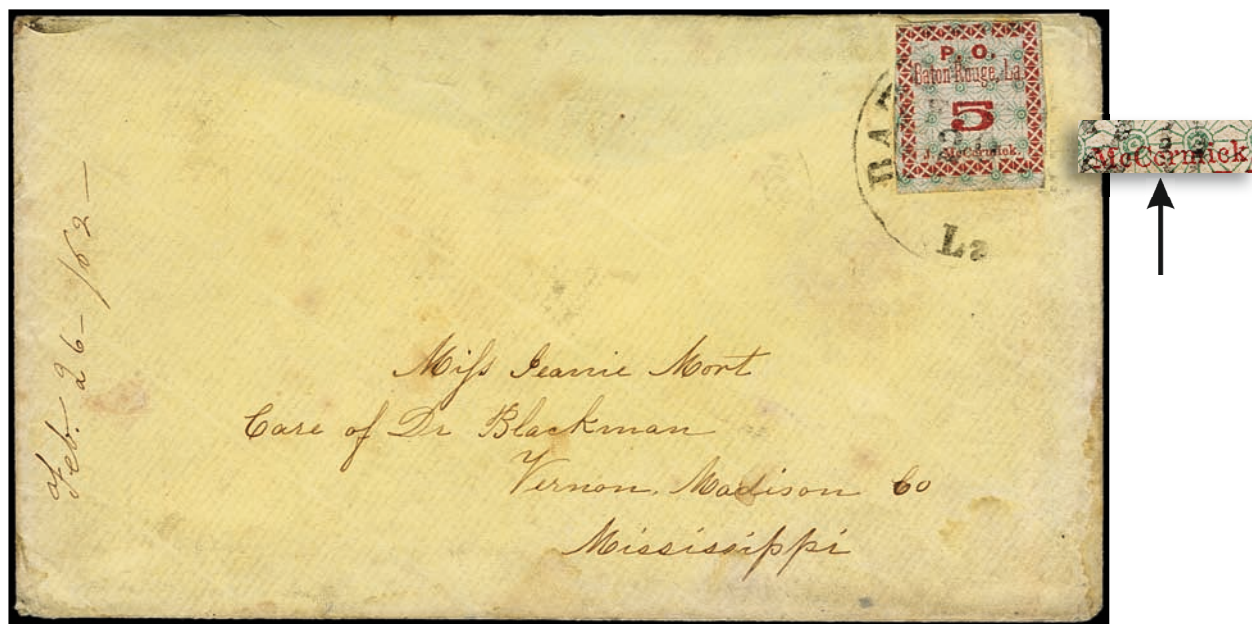 P. O.
Baton Rouge, La.
5
J. McCormick.
BAT
2
La
McCormick
Feb. 26 - /62 -
Miſs Jeanie Mort
Care of Dr Blackman
Vernon, Madison Co
Mississippi